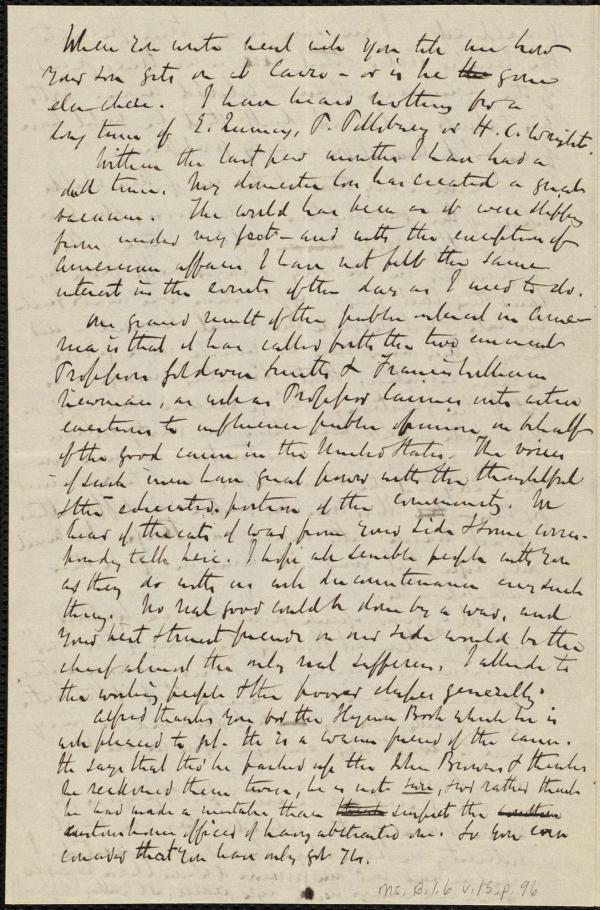 When you write next will you tell me how
your son gets on at Cairo - or is he the gone
elsewhere. I have heard nothing for a
long time of E. Quincy, P. Pillsbury or H. C. Wright.
Within the last few months I have had a
dull time. My domestic loss has created a great
vacuum. The world has been as it were slipping
from under my feet - and with the exception of
American affairs I have not felt the same
interest in the events of the day as I used to do.
One grand result of the public interest in Ame-
rica is that it has called forth the two eminent
Professors Goldwin Smith & Francis William
Newman, as well as Professor Cairnes into active
exertions to influence public opinion on behalf
of the good cause in the United States. The voices
of such men have great power with the thoughtful
& the educated portion of the community. We
hear of threats of war from your side & some corres-
ponding talk here. I hope all sensible people with you
as they do with us will discountenance any such
thing. No real good could be done by a war, and
your best & truest friends on our side would be the
chief almost the only real sufferers. I allude to
the working people & the poorer classes generally.
Alfred thanks you for the Hymn Book which he is
well pleased to get. He is a warm friend of the cause.
He says that tho' he packed up the John Browns & thinks
he reckoned them twice, he is not sure, & wd rather think
he had made a mistake than suspect the
custom house officers of having abstracted one. So you can
consider that you have only got 76.
Ms. B.1.6 v.15, p. 96